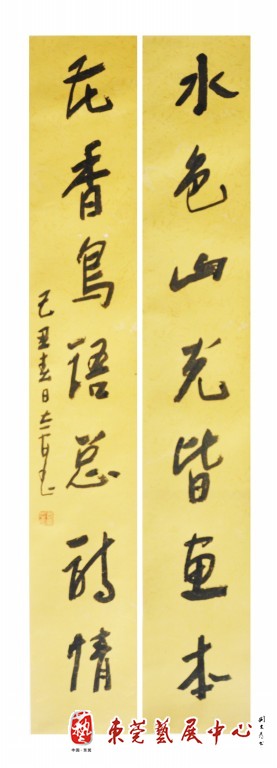 水色山光皆画本
花香鸟语总诗情
己丑春日
东莞艺展中心
中国·东莞